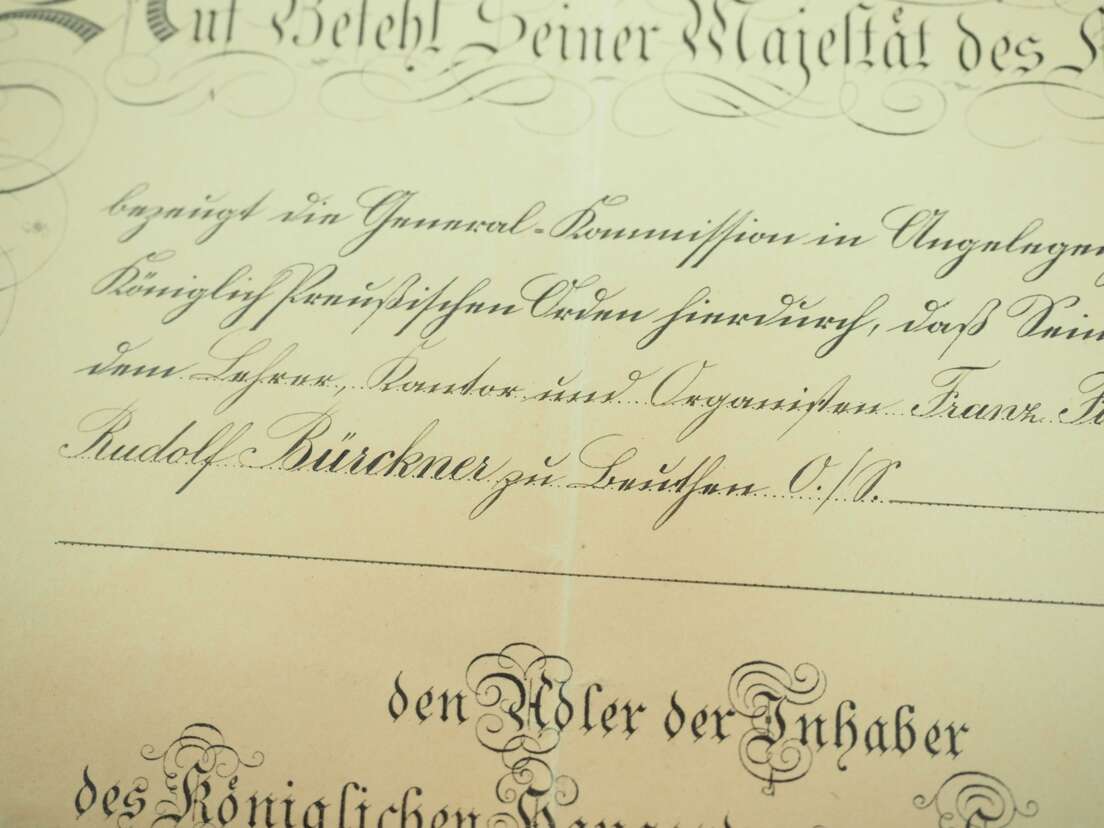 Auf Befehl Seiner Majestät des K
bezeugt die General-Kommission in Angelegen
Königlich Preußischen Orden hierdurch, daß Sein
dem Lehrer, Kantor und Organisten Franz
Rudolf Bürckner zu Beuthen O./S.
den Adler der Inhaber
des Königlichen